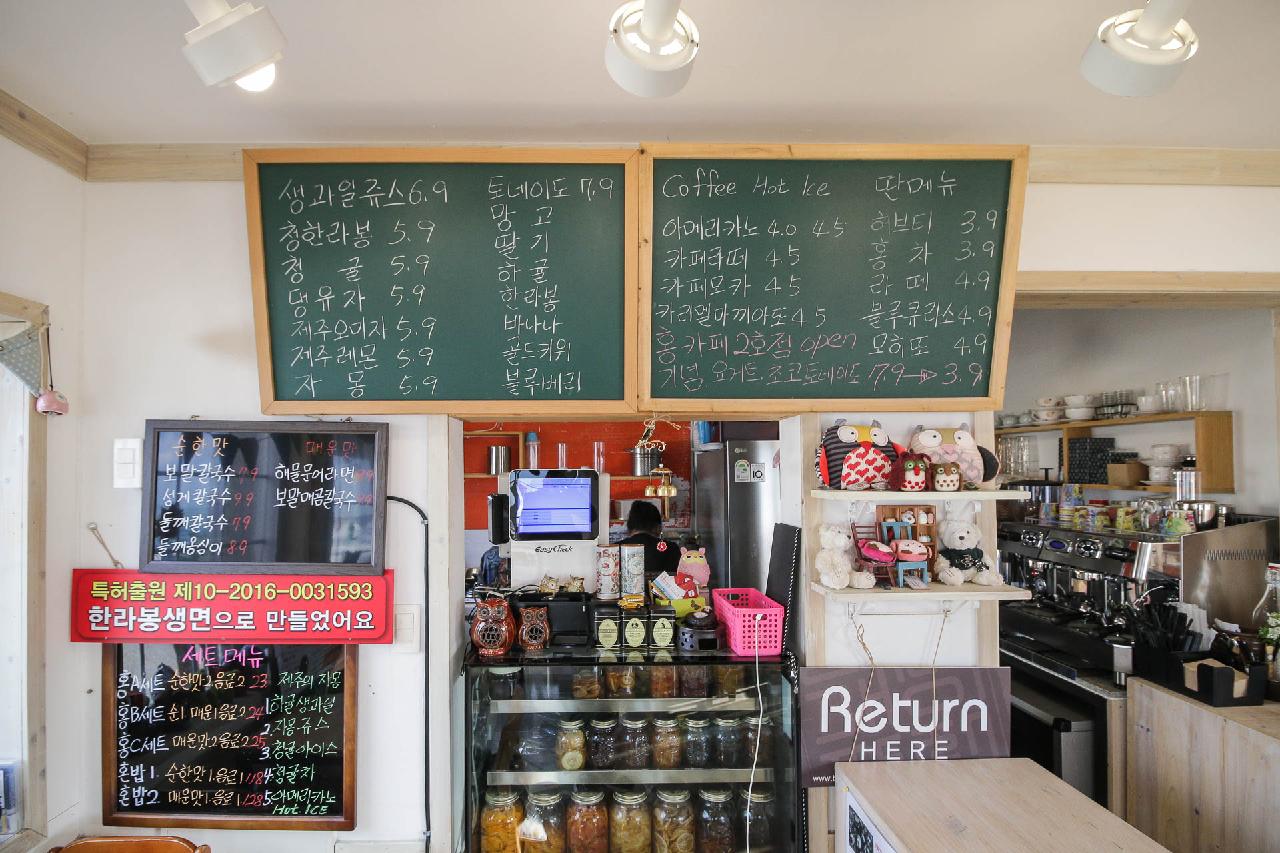 생과일쥬스 6.9
청한라봉 5.9
청 귤 5.9
댕유자 5.9
제주오미자 5.9
제주레몬 5.9
자 몽 5.9
토네이도 7.9
망 고
딸 기
하 귤
한라봉
바나나
골드키위
블루베리
Coffee Hot Ice
아메리카노 4.0 4.5
카페라떼 4.5
카페모카 4.5
카라멜마끼아또 4.5
딴메뉴
허브티 3.9
홍 차 3.9
라 떼 4.9
블루큐라소 4.9
모히또 4.9
홍카페 2호점 open
기념 요거트.초코토네이도 7.9→3.9
순한맛
보말칼국수 7.9
성게칼국수 9.9
들깨칼국수 7.9
들깨옹심이 8.9
매운맛
해물문어라면
보말매콤칼국수
특허출원 제10-2016-0031593
한라봉생면으로 만들었어요
세트메뉴
홍A세트 순한맛2.음료2 23
홍B세트 순1 매운1음료2 24
홍C세트 매운맛2 음료2 25
혼밥1. 순한맛1.음료1
혼밥2. 매운맛1.음료1
제주의 자몽
1.하귤생과일
2.자몽쥬스
3.
4.
5.아메리카노
Hot ICE
EasyCheck
Return
HERE